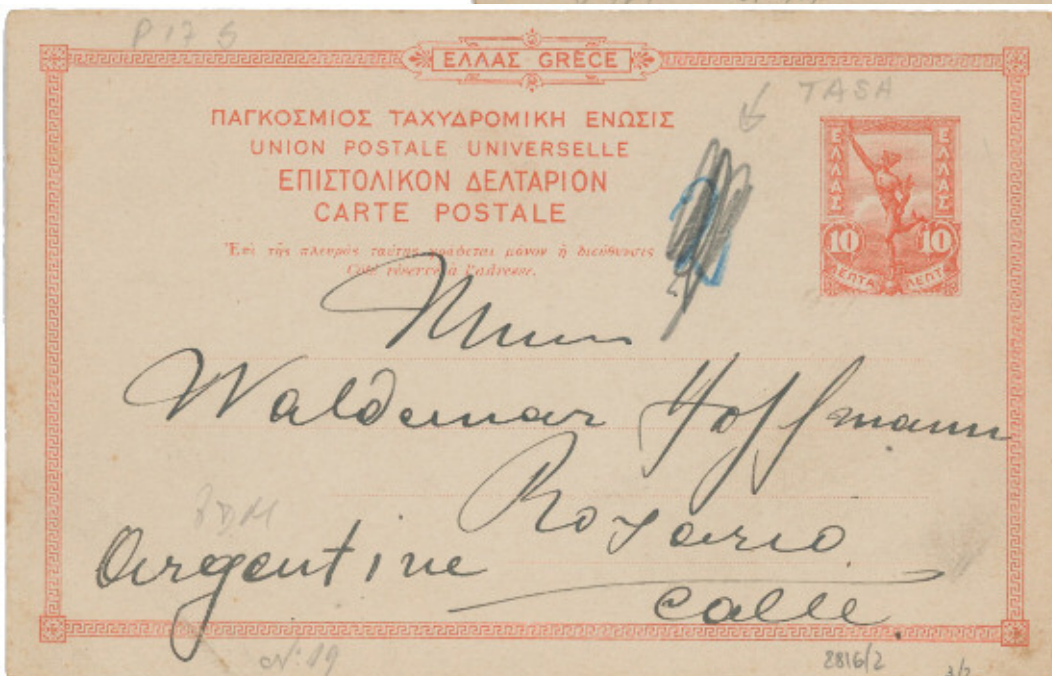 P 17 S
ΕΛΛΑΣ GRÈCE
TASA
ΠΑΓΚΟΣΜΙΟΣ ΤΑΧΥΔΡΟΜΙΚΗ ΕΝΩΣΙΣ
UNION POSTALE UNIVERSELLE
ΕΠΙΣΤΟΛΙΚΟΝ ΔΕΛΤΑΡΙΟΝ
CARTE POSTALE
Ἐπὶ τῆς πλευρᾶς ταύτης γράφεται μόνον ἡ διεύθυνσις
Côté réservé à l'adresse.
ΕΛΛΑΣ ΕΛΛΑΣ
10 10
ΛΕΠΤΑ ΛΕΠΤΑ
Waldemar Hoffmann
Rosario
Argentine
Calle
Nº 19
2816/2
3/2